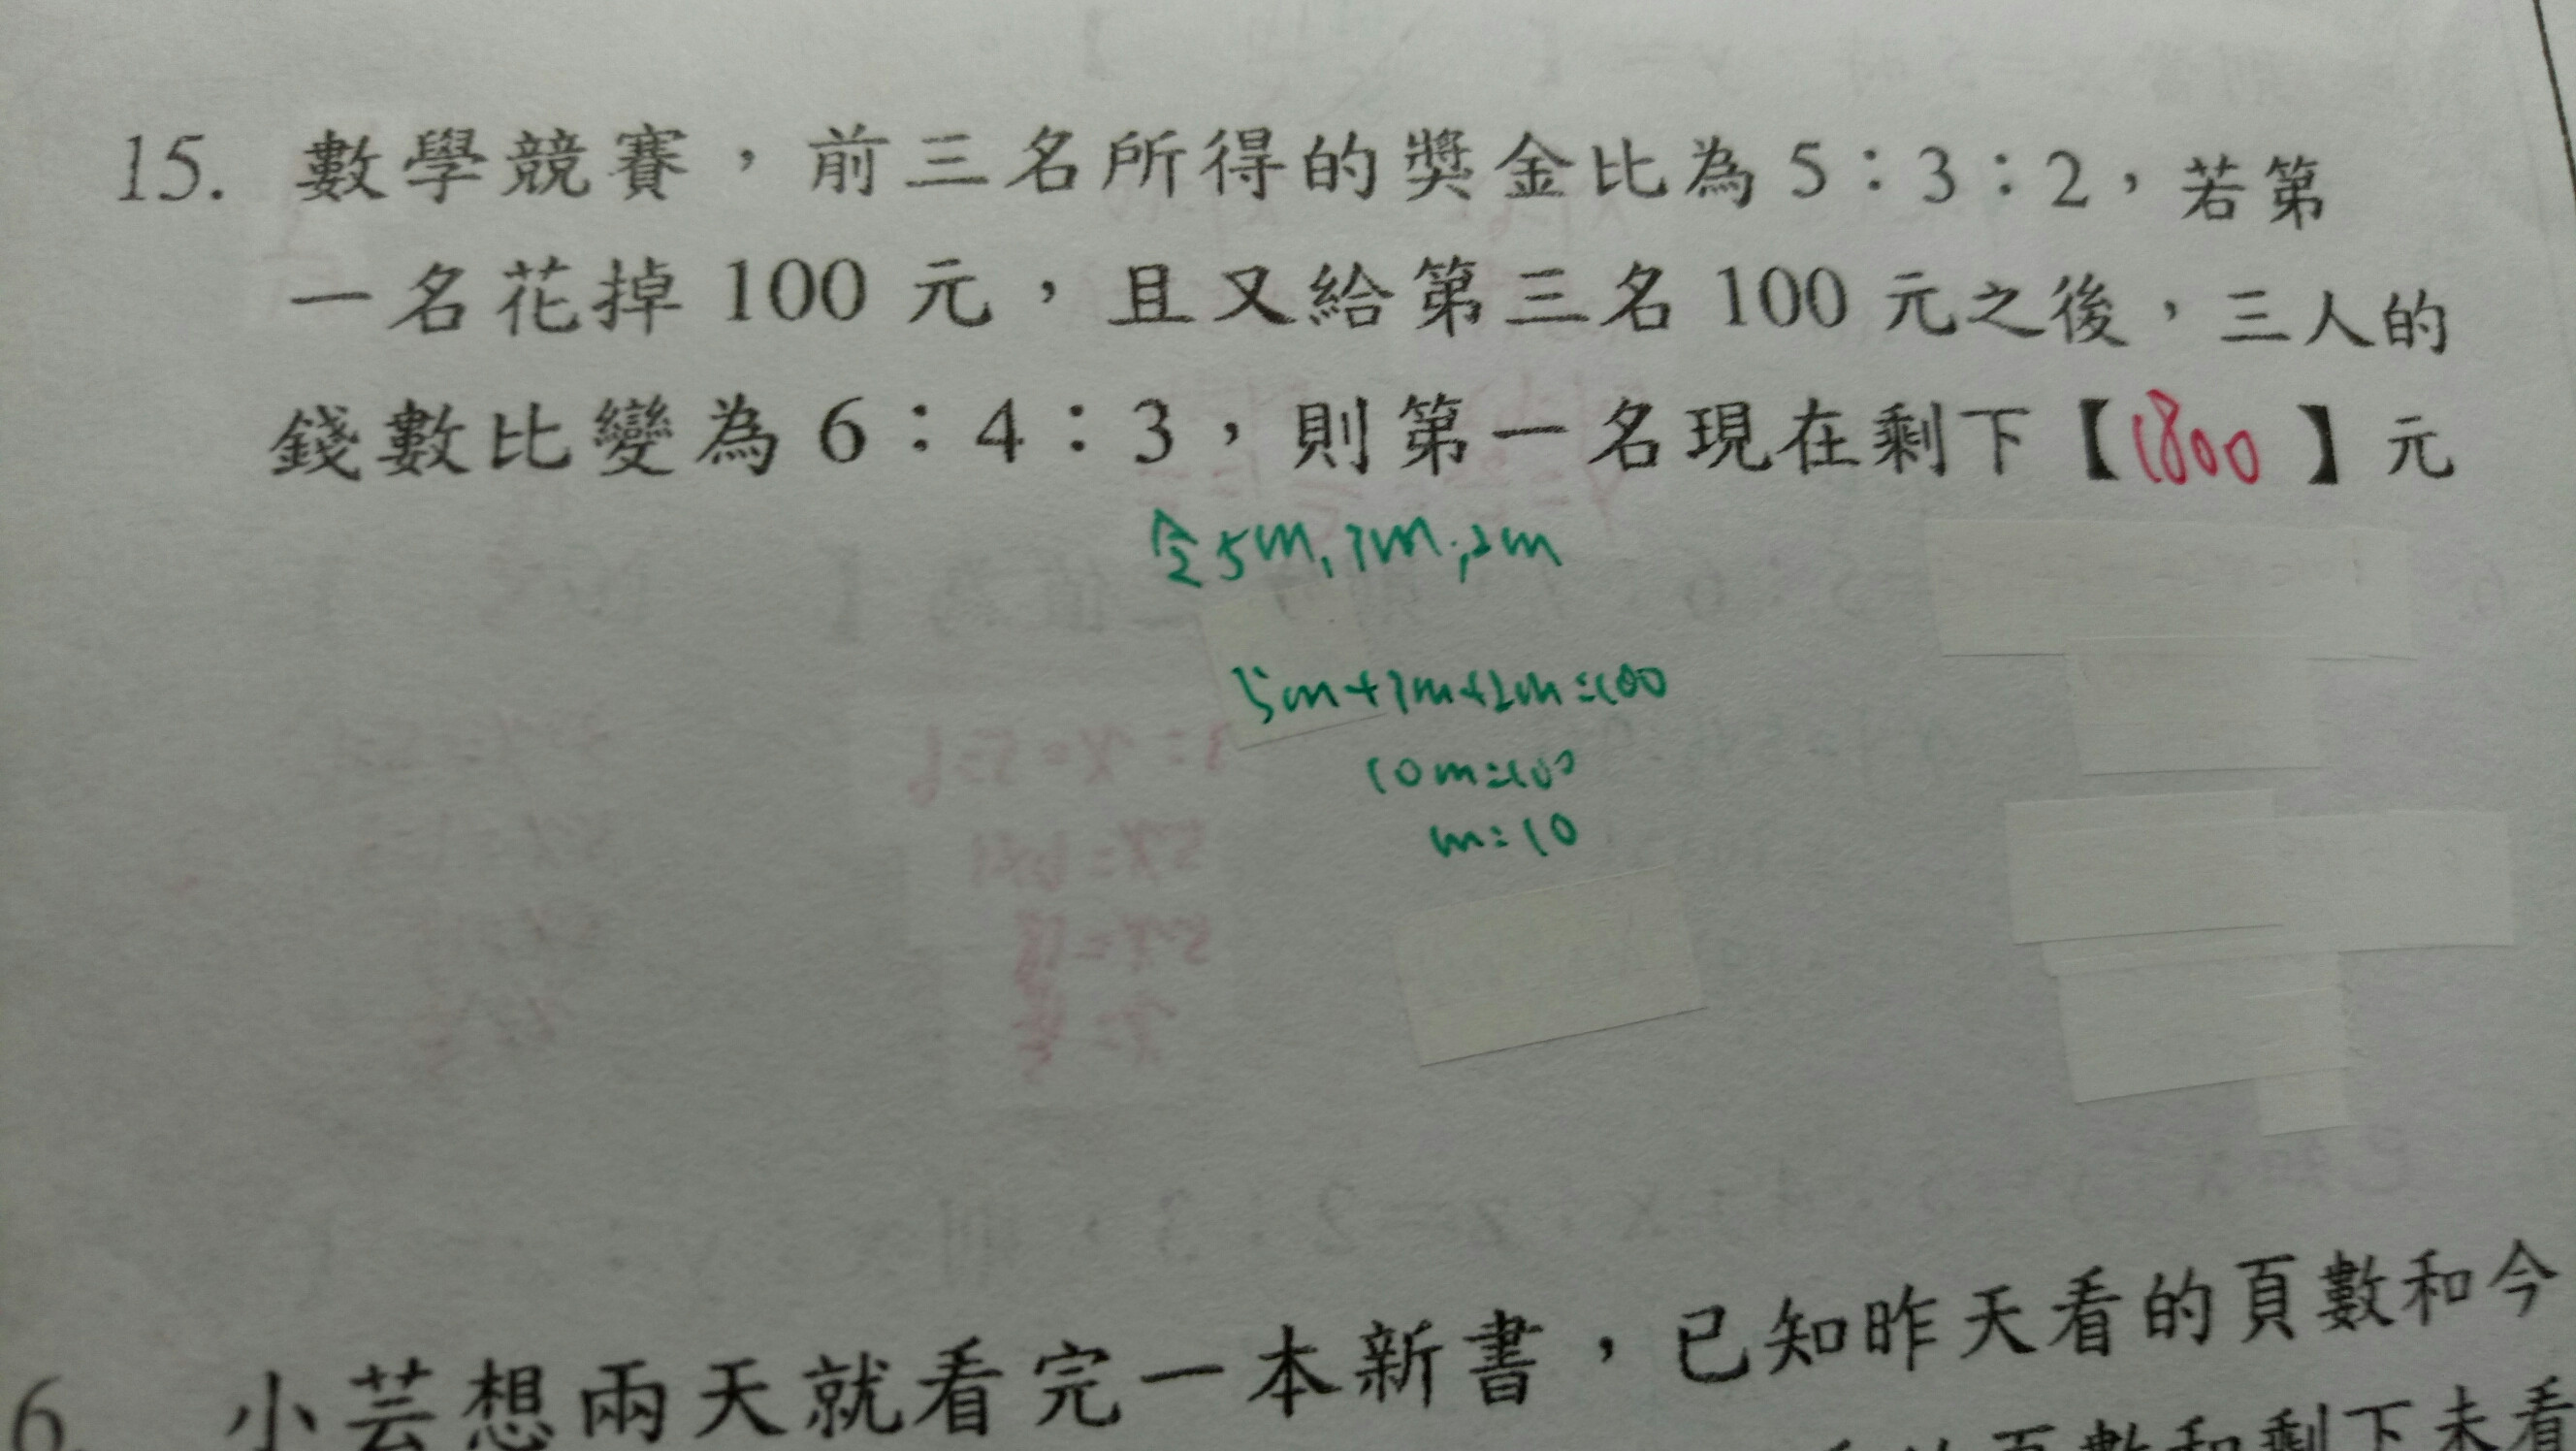 15. 數學競賽，前三名所得的獎金比為 5：3：2，若第
一名花掉 100 元，且又給第三名 100 元之後，三人的
錢數比變為 6：4：3，則第一名現在剩下【1800】元
令5m, 3m, 2m
5m+3m+2m=100
10m=100
m=10
6. 小芸想兩天就看完一本新書，已知昨天看的頁數和今
的頁數和剩下未看